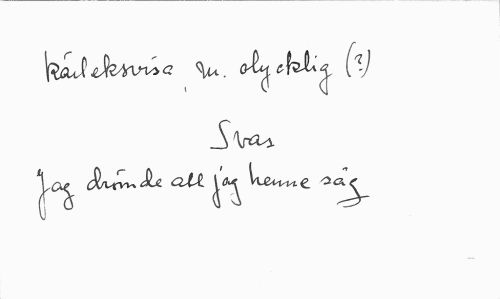 kärleksvisa, m. olycklig (?)
Svar
Jag drömde att jag henne såg